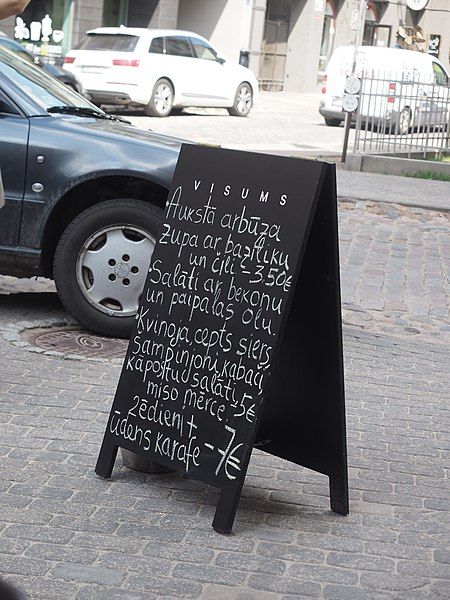 VISUMS
Aukstā arbūza
zupa ar baziliku
un čili - 3.50€
Salāti ar bekonu
un paipalas olu.
Kvinoja, cepts siers,
šampinjoni, kabači,
kāpostu salāti,
miso mērce. 5€
2 ēdieni +
ūdens karafe - 7€